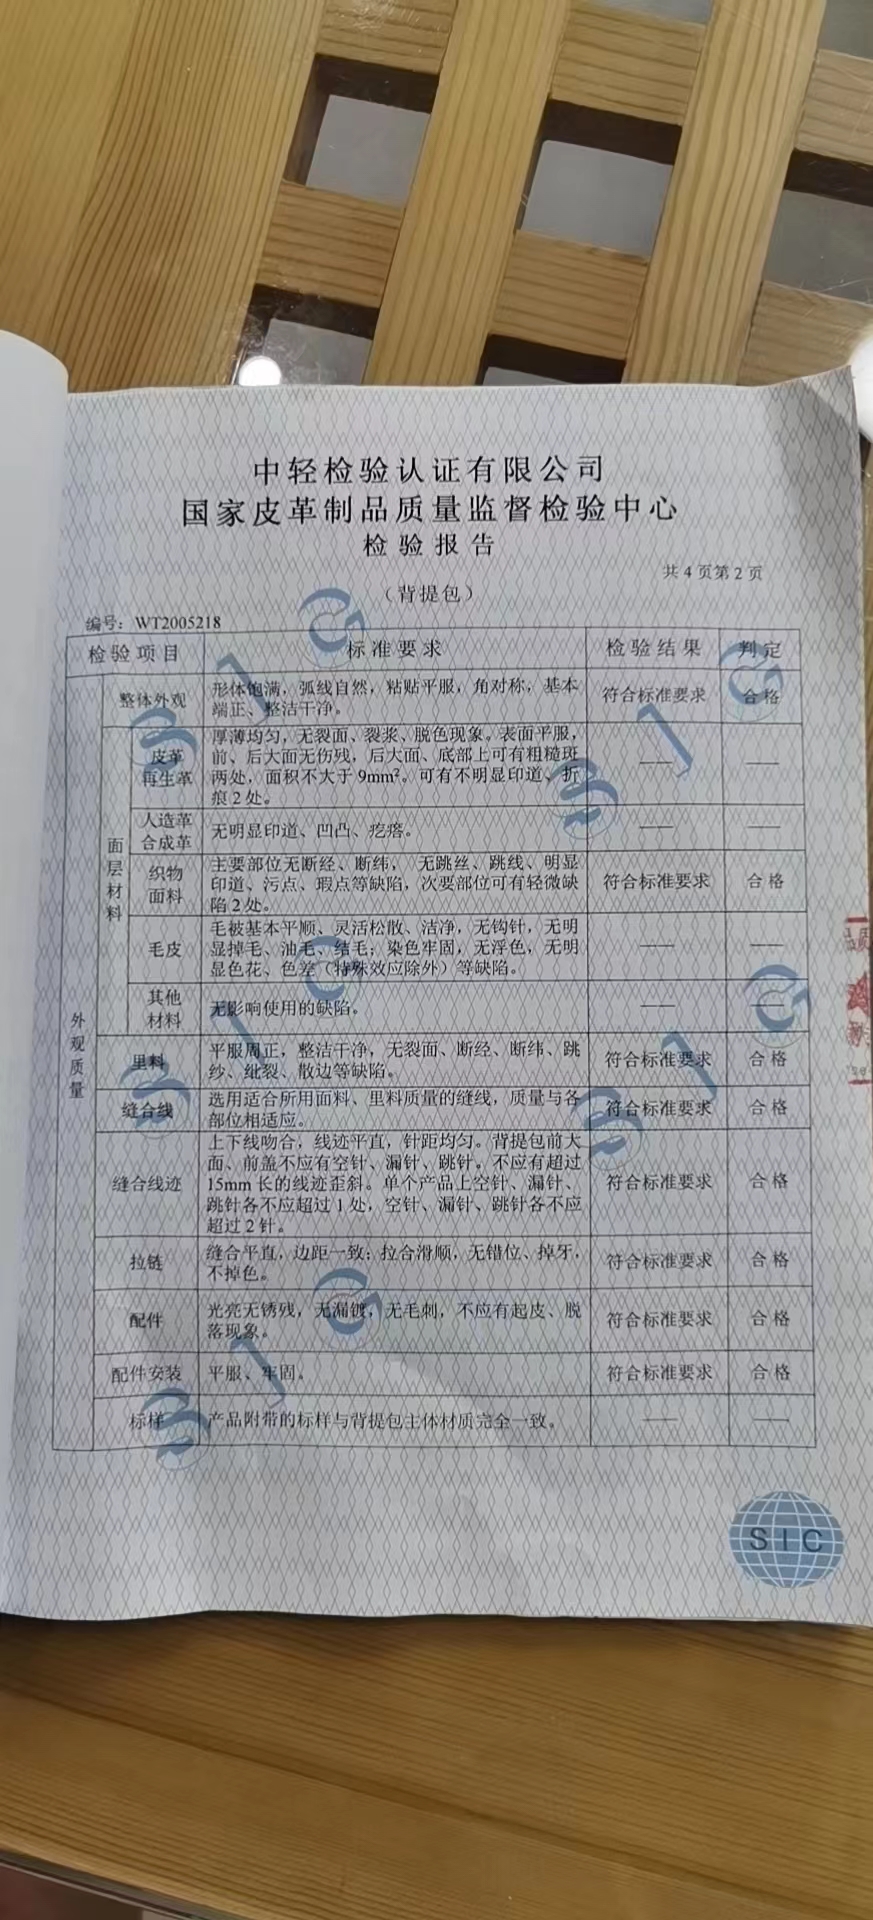 中轻检验认证有限公司
国家皮革制品质量监督检验中心
检验报告
共 4 页第 2 页
（背提包）
编号：WT2005218
检验项目 标准要求 检验结果 判定
外观质量
整体外观 形体饱满，弧线自然，粘贴平服，角对称，基本 符合标准要求 合格
端正、整洁干净。
面层材料
皮革
再生革
厚薄均匀，无裂面、裂浆、脱色现象。表面平服，
前、后大面无伤残，后大面、底部上可有粗糙斑
两处，面积不大于 9mm²。可有不明显印道、折
痕 2 处。
—— ——
人造革
合成革
无明显印道、凹凸、疙瘩。 —— ——
织物
面料
主要部位无断经、断纬， 无跳丝、跳线、明显
印道、污点、瑕点等缺陷，次要部位可有轻微缺
陷 2 处。
符合标准要求 合格
毛皮
毛被基本平顺、灵活松散、洁净，无钩针，无明
显掉毛、油毛、结毛；染色牢固，无浮色，无明
显色花、色差（特殊效应除外）等缺陷。
—— ——
其他
材料
无影响使用的缺陷。 —— ——
里料
平服周正，整洁干净，无裂面、断经、断纬、跳
纱、纰裂、散边等缺陷。
符合标准要求 合格
缝合线
选用适合所用面料、里料质量的缝线，质量与各
部位相适应。
符合标准要求 合格
缝合线迹
上下线吻合，线迹平直，针距均匀。背提包前大
面、前盖不应有空针、漏针、跳针。不应有超过
15mm 长的线迹歪斜。单个产品上空针、漏针、
跳针各不应超过 1 处，空针、漏针、跳针各不应
超过 2 针。
符合标准要求 合格
拉链
缝合平直，边距一致；拉合滑顺，无错位、掉牙，
不掉色。
符合标准要求 合格
配件
光亮无锈残，无漏镀，无毛刺，不应有起皮、脱
落现象。
符合标准要求 合格
配件安装 平服、牢固。 符合标准要求 合格
标样 产品附带的标样与背提包主体材质完全一致。 —— ——
SIC